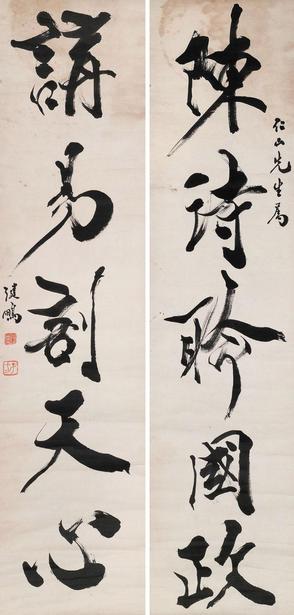 陳詩聆國政
仁山先生屬
講易剖天心
鵬